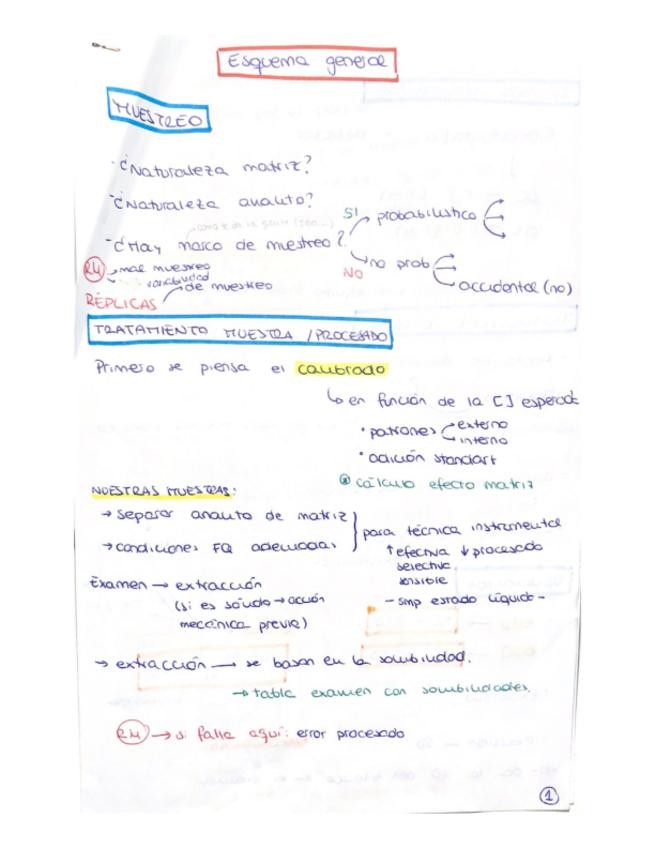 Esquema general
MUESTREO
-¿Naturaleza matriz?
-¿Naturaleza analito?
-¿Hay marco de muestreo?
SI → probabilístico
NO → no prob
accidental (no)
RM → mal muestreo
→ variabilidad de muestreo
RÉPLICAS
TRATAMIENTO MUESTRA / PROCESADO
Primero se piensa el calibrado
↳ en función de la [] esperada
• patrones externo
interno
• adición standart
cálculo efecto matriz
NUESTRAS MUESTRAS:
→ separar analito de matriz
→ condiciones FQ adecuadas
para técnica instrumental
↑ efectiva ↓ procesado
selectiva
sensible
- smp estado líquido -
Examen → extracción
(si es sólido → acción
mecánica previa)
→ extracción → se basan en la solubilidad.
→ tabla examen con solubilidades.
RM → si falla aquí: error procesado
1